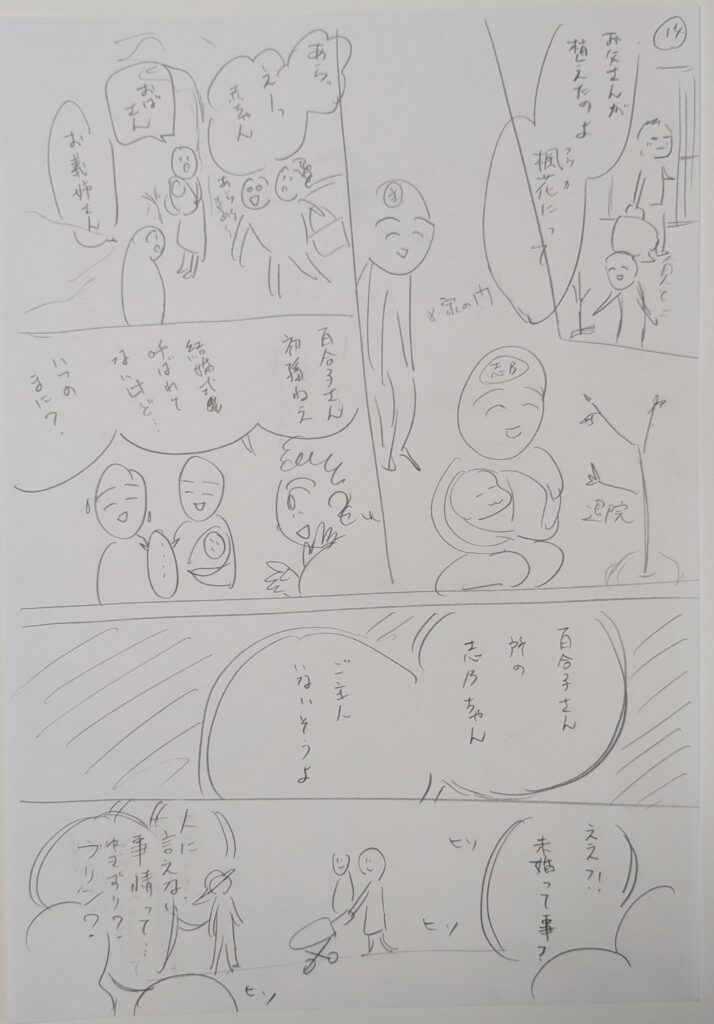 14
お父さんが
植えたのよ
楓花にって
フウカ
見て
ま
※家の中
志乃
退院
あら、
えーっ
赤ちゃん
あらあら
まあ〜
おば
さん
お義姉さん
百合子さん
初孫ねえ
結婚式
呼ばれて
ないけど…
いつの
まに?
…
百合子さん
所の
志乃ちゃん
ご主人
いないそうよ
ええ?!
未婚って事?
ヒソ
ヒソ
人に
言えない
事情って…
ゆきずり?
フリン?
ヒソ